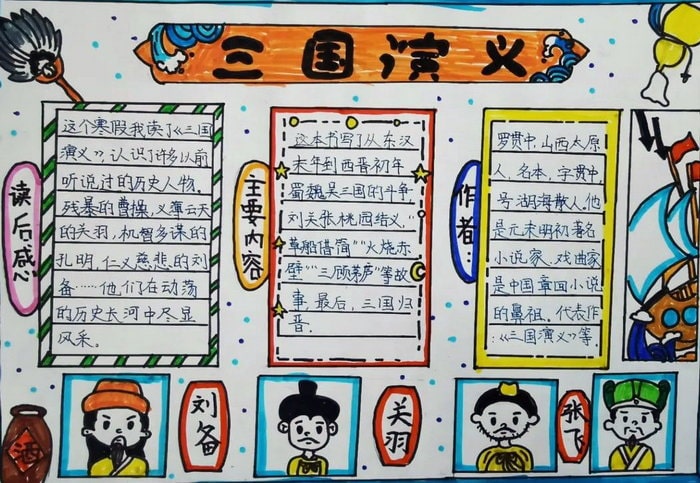 三国演义
读后感
这个寒假我读了《三国
演义》,认识了许多以前
听说过的历史人物。
残暴的曹操,义薄云天
的关羽,机智多谋的
孔明,仁义慈悲的刘
备……他们在动荡
的历史长河中尽显
风采。
主要内容
这本书写了从东汉
末年到西晋初年
蜀魏吴三国的斗争
刘关张桃园结义,“
草船借箭”“火烧赤
壁”“三顾茅庐”等故
事,最后,三国归
晋.
作者:
罗贯中,山西太原
人,名本,字贯中,
号湖海散人,他
是元末明初著名
小说家、戏曲家
是中国章回小说
的鼻祖,代表作
:《三国演义》等.
酒
刘备
关羽
张飞